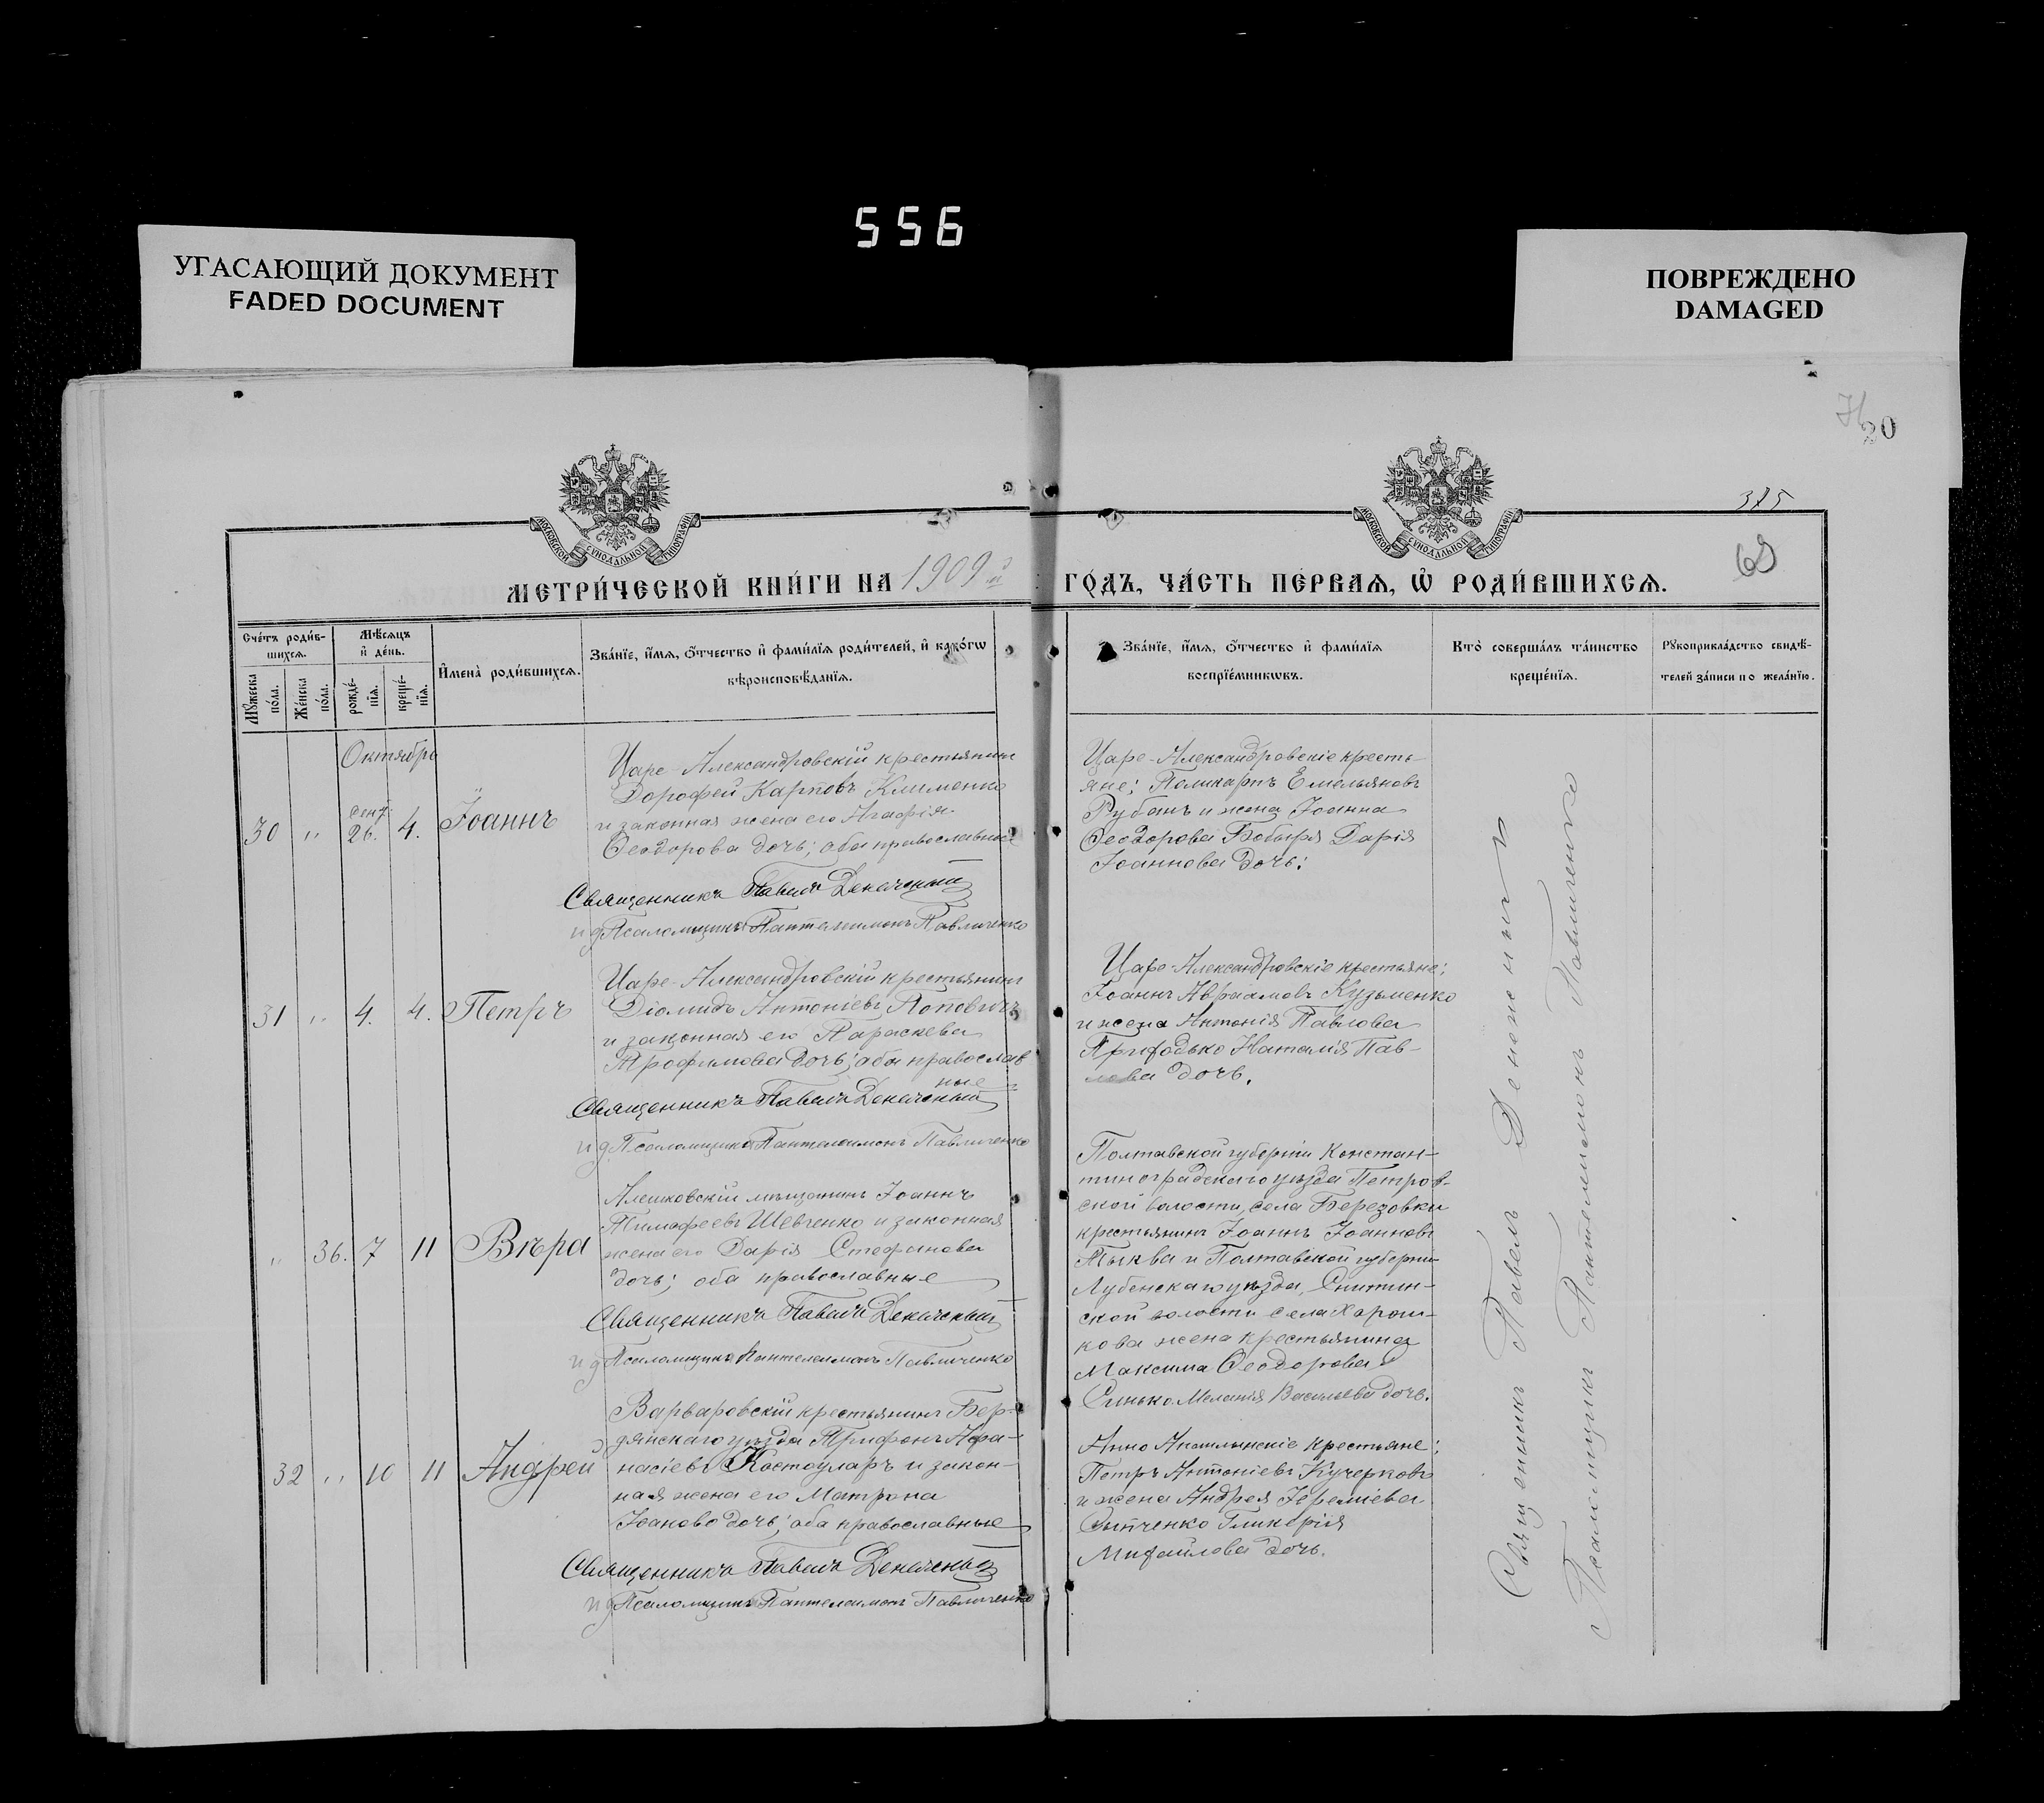 556
УГАСАЮЩИЙ ДОКУМЕНТ
FADED DOCUMENT
ПОВРЕЖДЕНО
DAMAGED
20
315
69
МОСКОВСКОЙ СѴНОДАЛЬНОЙ ТИПОГРАФІИ
МОСКОВСКОЙ СѴНОДАЛЬНОЙ ТИПОГРАФІИ
МЕТРИ́ЧЕСКОЙ КНИ́ГИ НА 1909й ГО́ДЪ, ЧА́СТЬ ПЕ́РВАѦ, Ѡ҆ РОДИ́ВШИХСѦ.
Сче́тъ роди́в-
шихсѧ.
Мꙋ́жеска по́ла.
Же́нска по́ла.
Мѣ́сѧцъ и҆ де́нь.
рожде́-
нїѧ.
креще́-
нїѧ.
И҆мена̀ роди́вшихсѧ.
Зва́нїе, и҆́мѧ, ѻ҆́тчество и҆ фами́лїѧ роди́телей, и҆ како́гѡ
вѣроисповѣ́данїѧ.
Зва́нїе, и҆́мѧ, ѻ҆́тчество и҆ фами́лїѧ
воспрїе́мникѡвъ.
Кто̀ соверша́лъ та́инство
креще́нїѧ.
Рꙋкоприкла́дство свидѣ́-
телей за́писи по жела́нїю.
Октябрь
30 " Сент. 26. 4. Іоаннъ
Царе-Александровскій крестьянинъ
Дорофей Карповъ Клименко
и законная жена его Агафія
Ѳеодорова дочь; оба православные
Священникъ Павелъ
и д Псаломщика Пантелеимонъ Павличенко
Царе-Александровскіе кресть-
яне; Поликарпъ Емельяновъ
Рубанъ и жена Іоанна
Ѳеодорова Бобыря Дарія
Іоаннова дочь:
31 " 4. 4. Петръ
Царе-Александровскій крестьянинъ
Діомидъ Антоніевъ Поповичъ
и законная его Параскева
Трофимова дочь; оба православ
ные
Священникъ Павелъ
и д Псаломщика Пантелеимонъ Павличенко
Царе-Александровскіе крестьяне;
Іоаннъ Авраамовъ Кузьменко
и жена Антонія Павлова
Приходько Наталія Пав-
лова дочь.
" 36. 7 11 Вѣра
Алешковскій мѣщанинъ Іоаннъ
Тимофеевъ Шевченко и законная
жена его Дарія Стефанова
дочь; оба православные
Священникъ Павелъ
и д Псаломщика Пантелеимонъ Павличенко
Полтавской губерніи Констан-
тиноградскаго уѣзда Петров-
ской волости, села Березовки
крестьянинъ Іоаннъ Іоанновъ
Тыква и Полтавской губерніи
Лубенскаго уѣзда, Снитин-
ской волости села Хорош-
кова жена крестьянина
Максима Ѳеодорова
Синько Меланія Васильева дочь.
32 " 10 11 Андрей
Варваровскій крестьянинъ Бер-
дянскаго уѣзда Трифонъ Афа-
насіевъ Костоуларъ и закон-
ная жена его Матрона
Іоаково дочь; оба православные
Священникъ Павелъ
и д Псаломщика Пантелеимонъ Павличенко
крестьяне;
Петръ Антоніевъ Кучерковъ
и жена Андрея Іереміева
Сытченко Гликерія
Михайлова дочь.
Священникъ Павелъ
Псаломщикъ Пантелеимонъ Павличенко